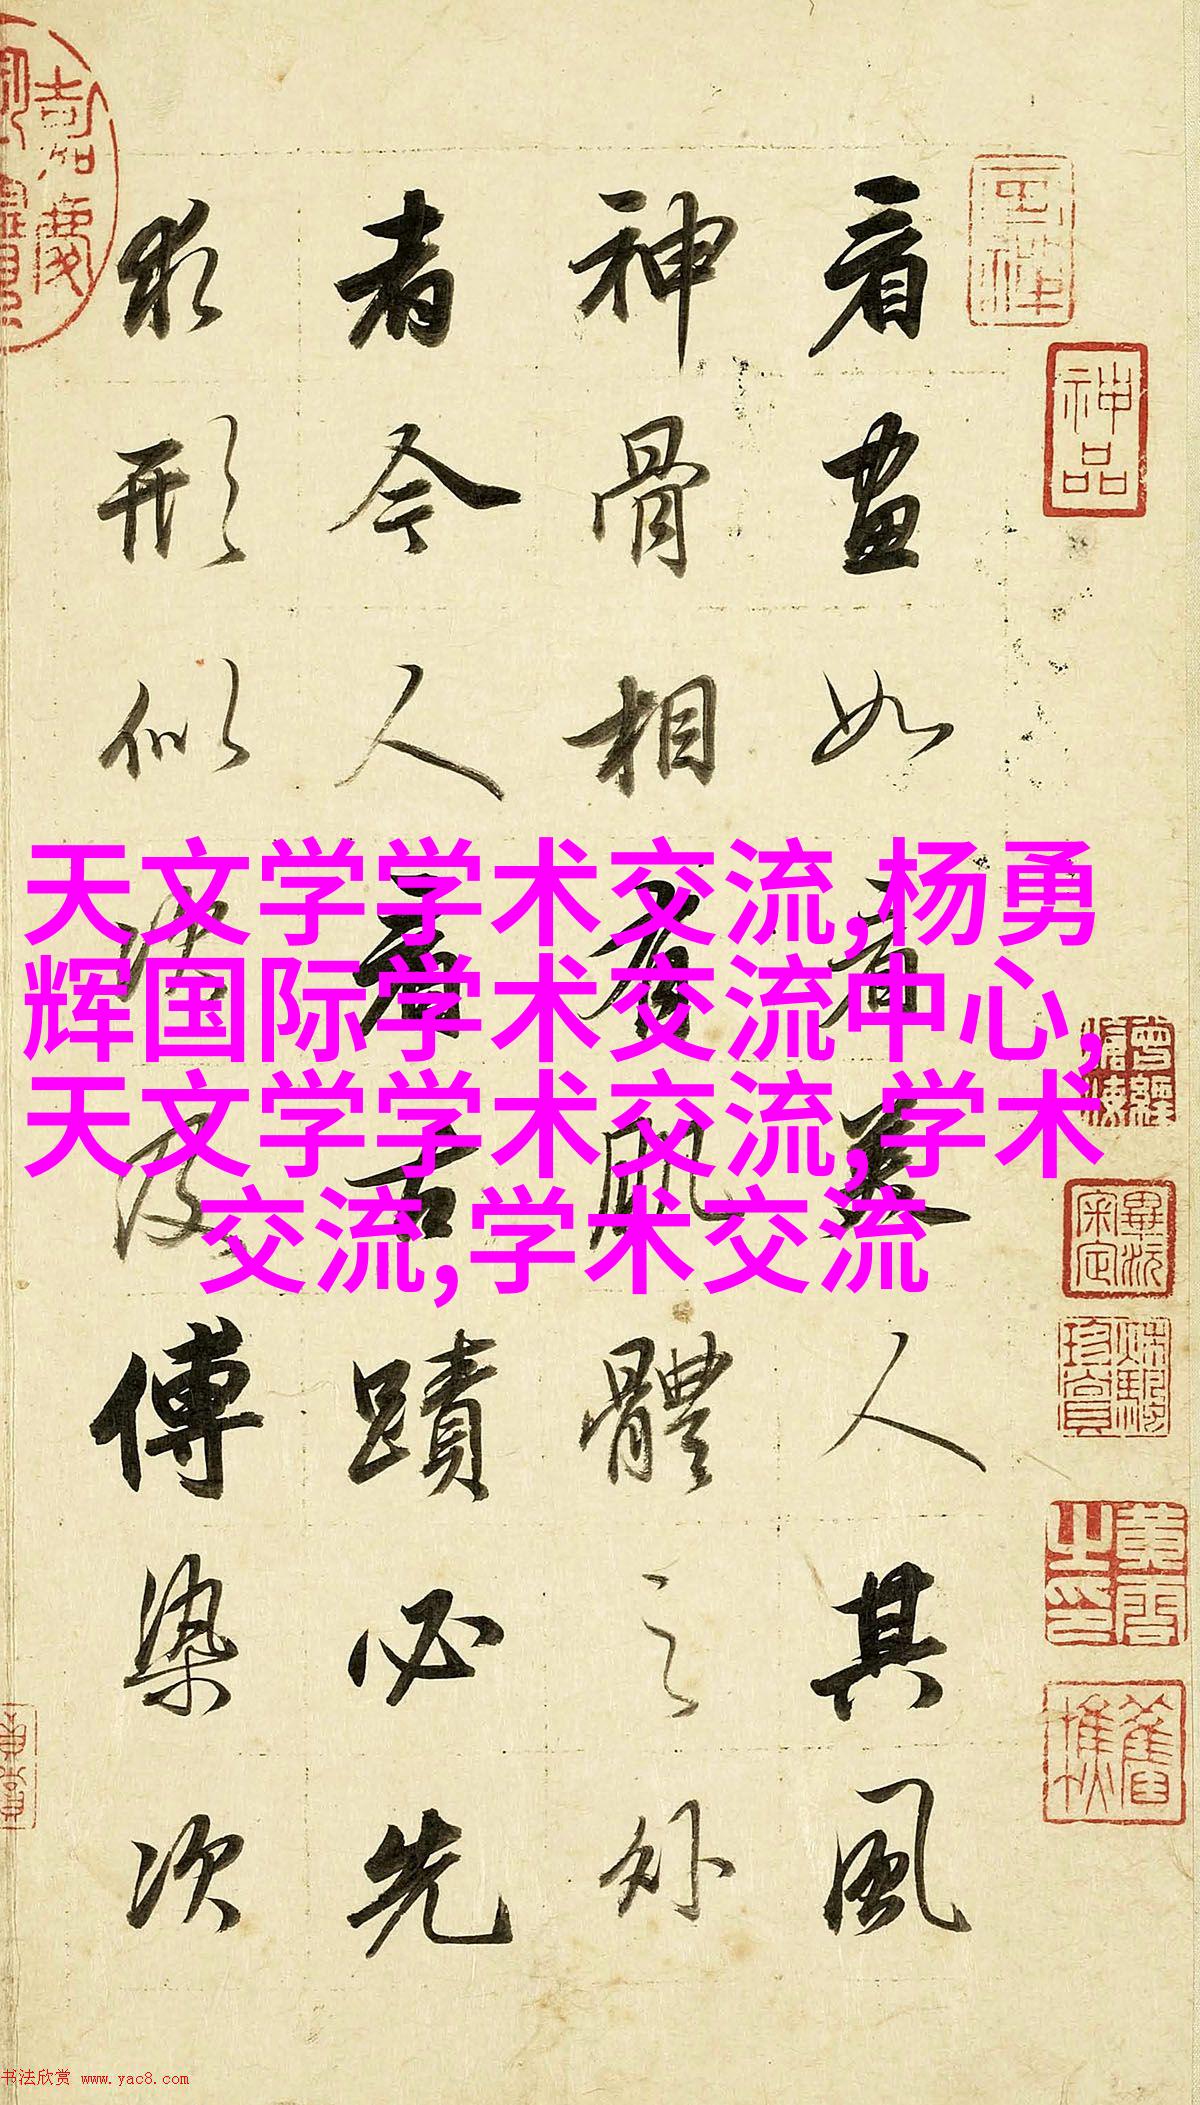 看畫如看美人其風
神骨相有肌體之外
者今人看古蹟必先
求形似次及傅染次
天文学学术交流,杨勇
辉国际学术交流中心,
天文学学术交流,学术
交流,学术交流
神品
书法欣赏 www.yac8.com